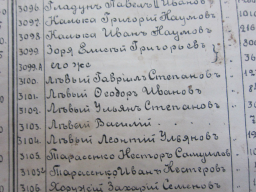 3096 Гладунъ Павелъ Ивановъ
3097 Калюга Григорій Наумовъ
3098 Калюга Иванъ Наумовъ
3099 Зоря Григорьевъ
3099.А его же
3100. Лѣвый Гавріилъ Степановъ
3101. Лѣвый Ѳеодоръ Ивановъ
3102. Лѣвый Ульянъ Степановъ
3103. Лѣвый Василій
3104. Лѣвый Леонтій Ульяновъ
3105. Тарасенко Несторъ
3105А Тарасенко Иванъ Нестеровъ
Захарій Семеновъ